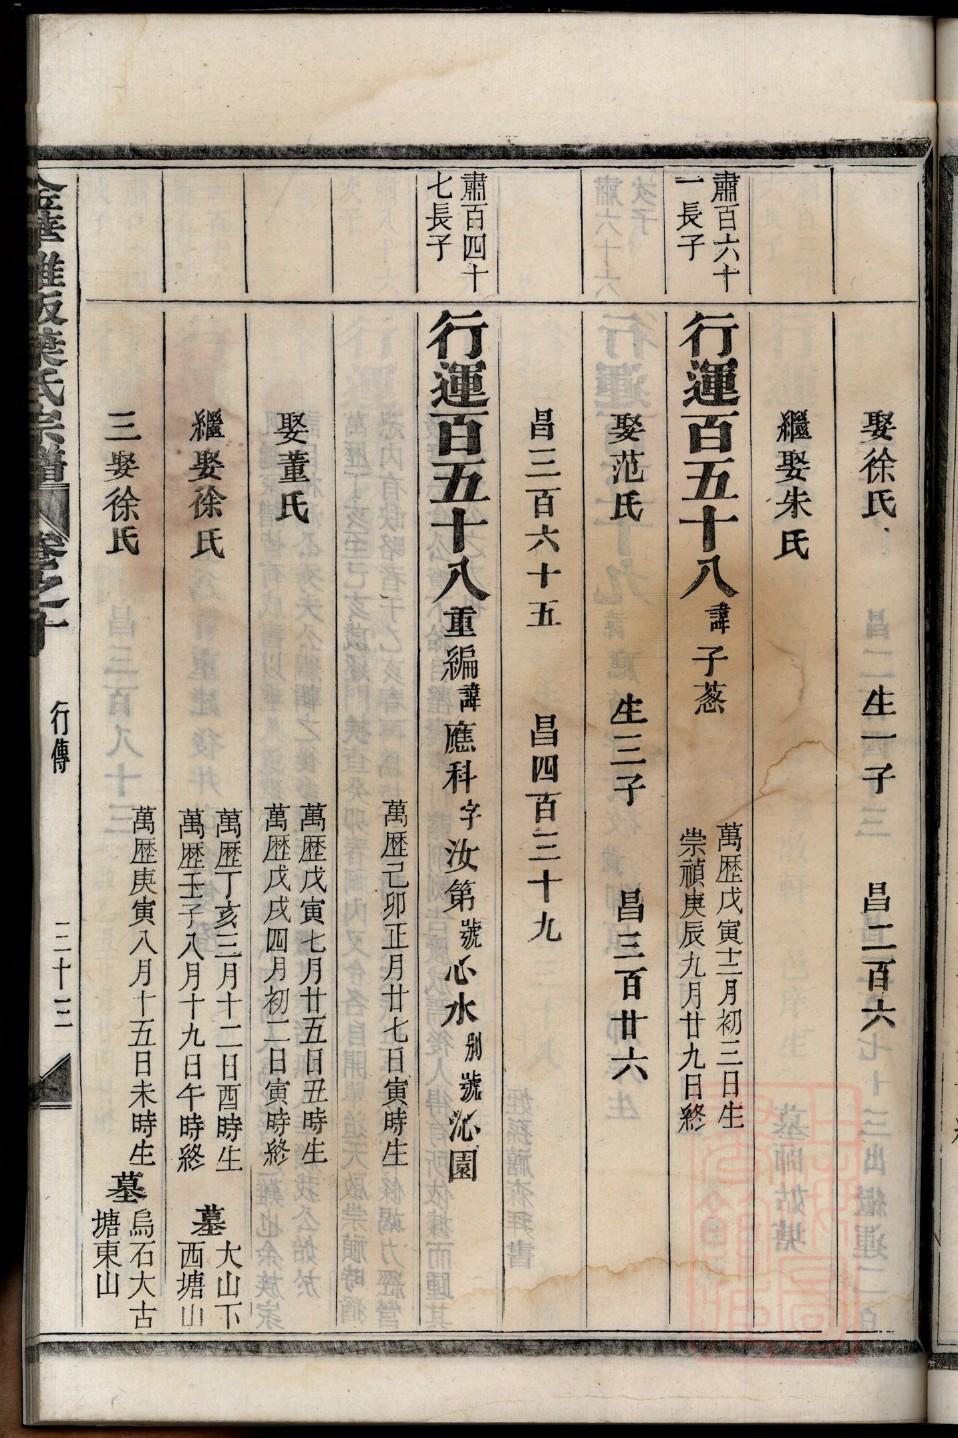 娶徐氏 生一子 昌二百六
繼娶朱氏
肅百六十
一長子
行運百五十八 諱子蔥
萬歷戊寅十二月初三日生
崇禎庚辰九月廿九日終
娶范氏 生三子 昌三百廿六
昌三百六十五 昌四百三十九
肅百四十
七長子
行運百五十八 重編諱應科字汝第號心水別號沁園
萬歷己卯正月廿七日寅時生
娶董氏
萬歷戊寅七月廿五日丑時生
萬歷戊戌四月初二日寅時終
繼娶徐氏
萬歷丁亥三月十二日酉時生
萬歷壬子八月十九日午時終
墓大山下
西塘山
三娶徐氏
萬歷庚寅八月十五日未時生
墓烏石大古
塘東山
葉氏宗譜 卷之十 行傳 三十三